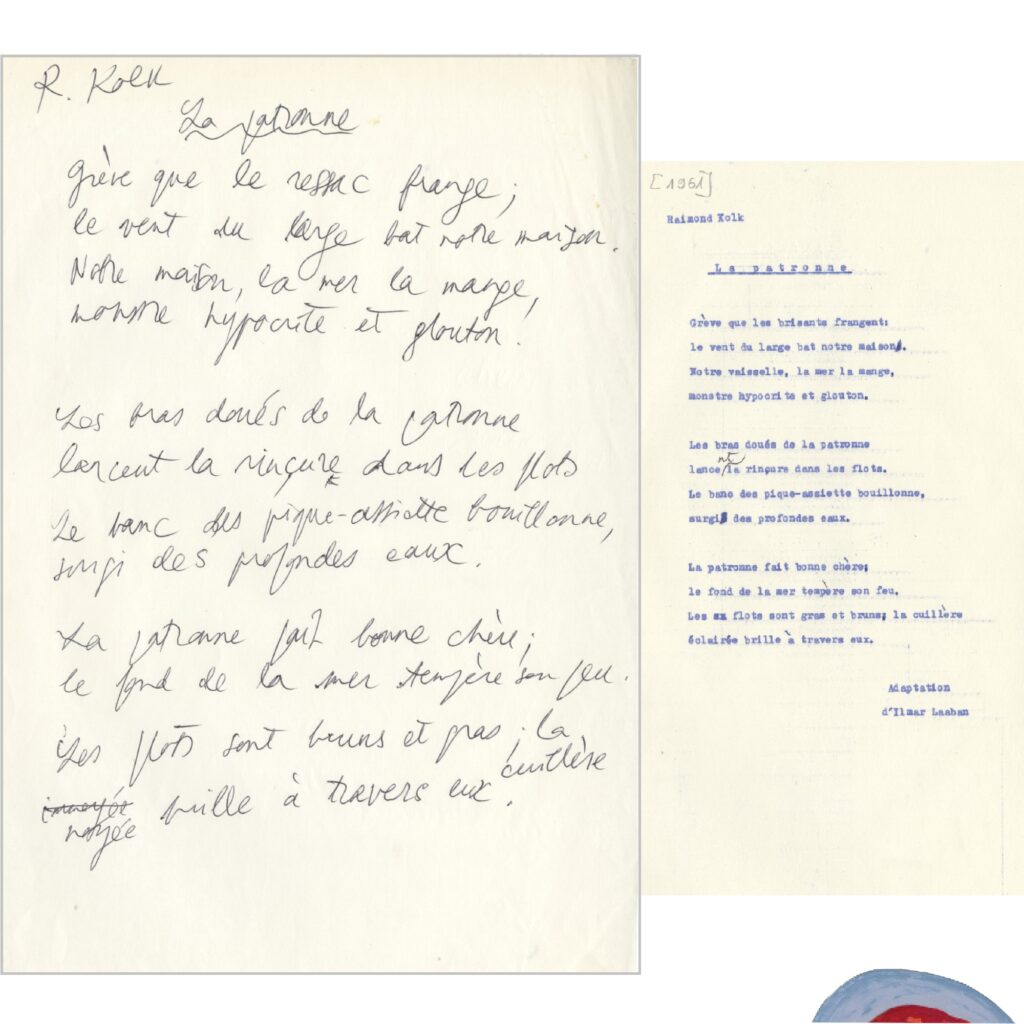 R. Kolk
La patronne
Grève que le ressac frange;
le vent du large bat notre maison.
Notre maison, la mer la mange,
monstre hypocrite et glouton!
Les bras doués de la patronne
lancent la rinçure dans les flots
Le banc des pique-assiette bouillonne,
surgi des profondes eaux.
La patronne fait bonne chère;
le fond de la mer tempère son feu.
Les flots sont bruns et gras; la
cuillère
brille à travers eux.
noyée
[1961]
Raimond Kolk
La patronne
Grève que les brisants frangent:
le vent du large bat notre maison.
Notre vaisselle, la mer la mange,
monstre hypocrite et glouton.
Les bras doués de la patronne
lancent la rinçure dans les flots.
Le banc des pique-assiette bouillonne,
surgi des profondes eaux.
La patronne fait bonne chère;
le fond de la mer tempère son feu.
Les flots sont gras et bruns; la cuillère
éclairée brille à travers eux.
Adaptation
d'Ilmar Laaban